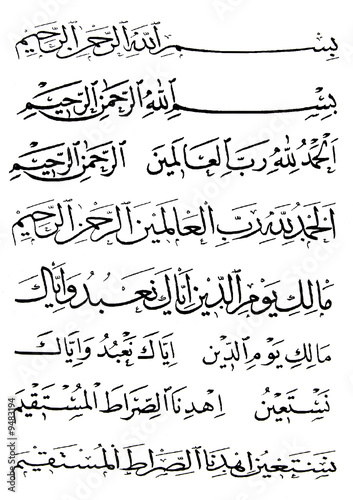 بسم الله الرحمن الرحيم
بسم الله الرحمن الرحيم
الحمد لله رب العالمين الرحمن الرحيم
الحمد لله رب العالمين الرحمن الرحيم
مالك يوم الدين اياك نعبد واياك
مالك يوم الدين اياك نعبد واياك
نستعين اهدنا الصراط المستقيم
نستعين اهدنا الصراط المستقيم